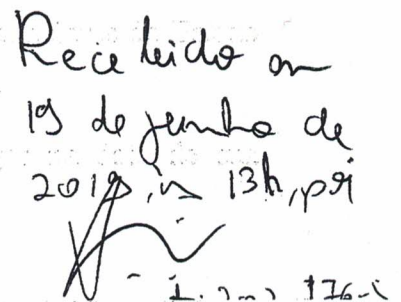 Recebido em
19 de junho de
2019, às 13h, por